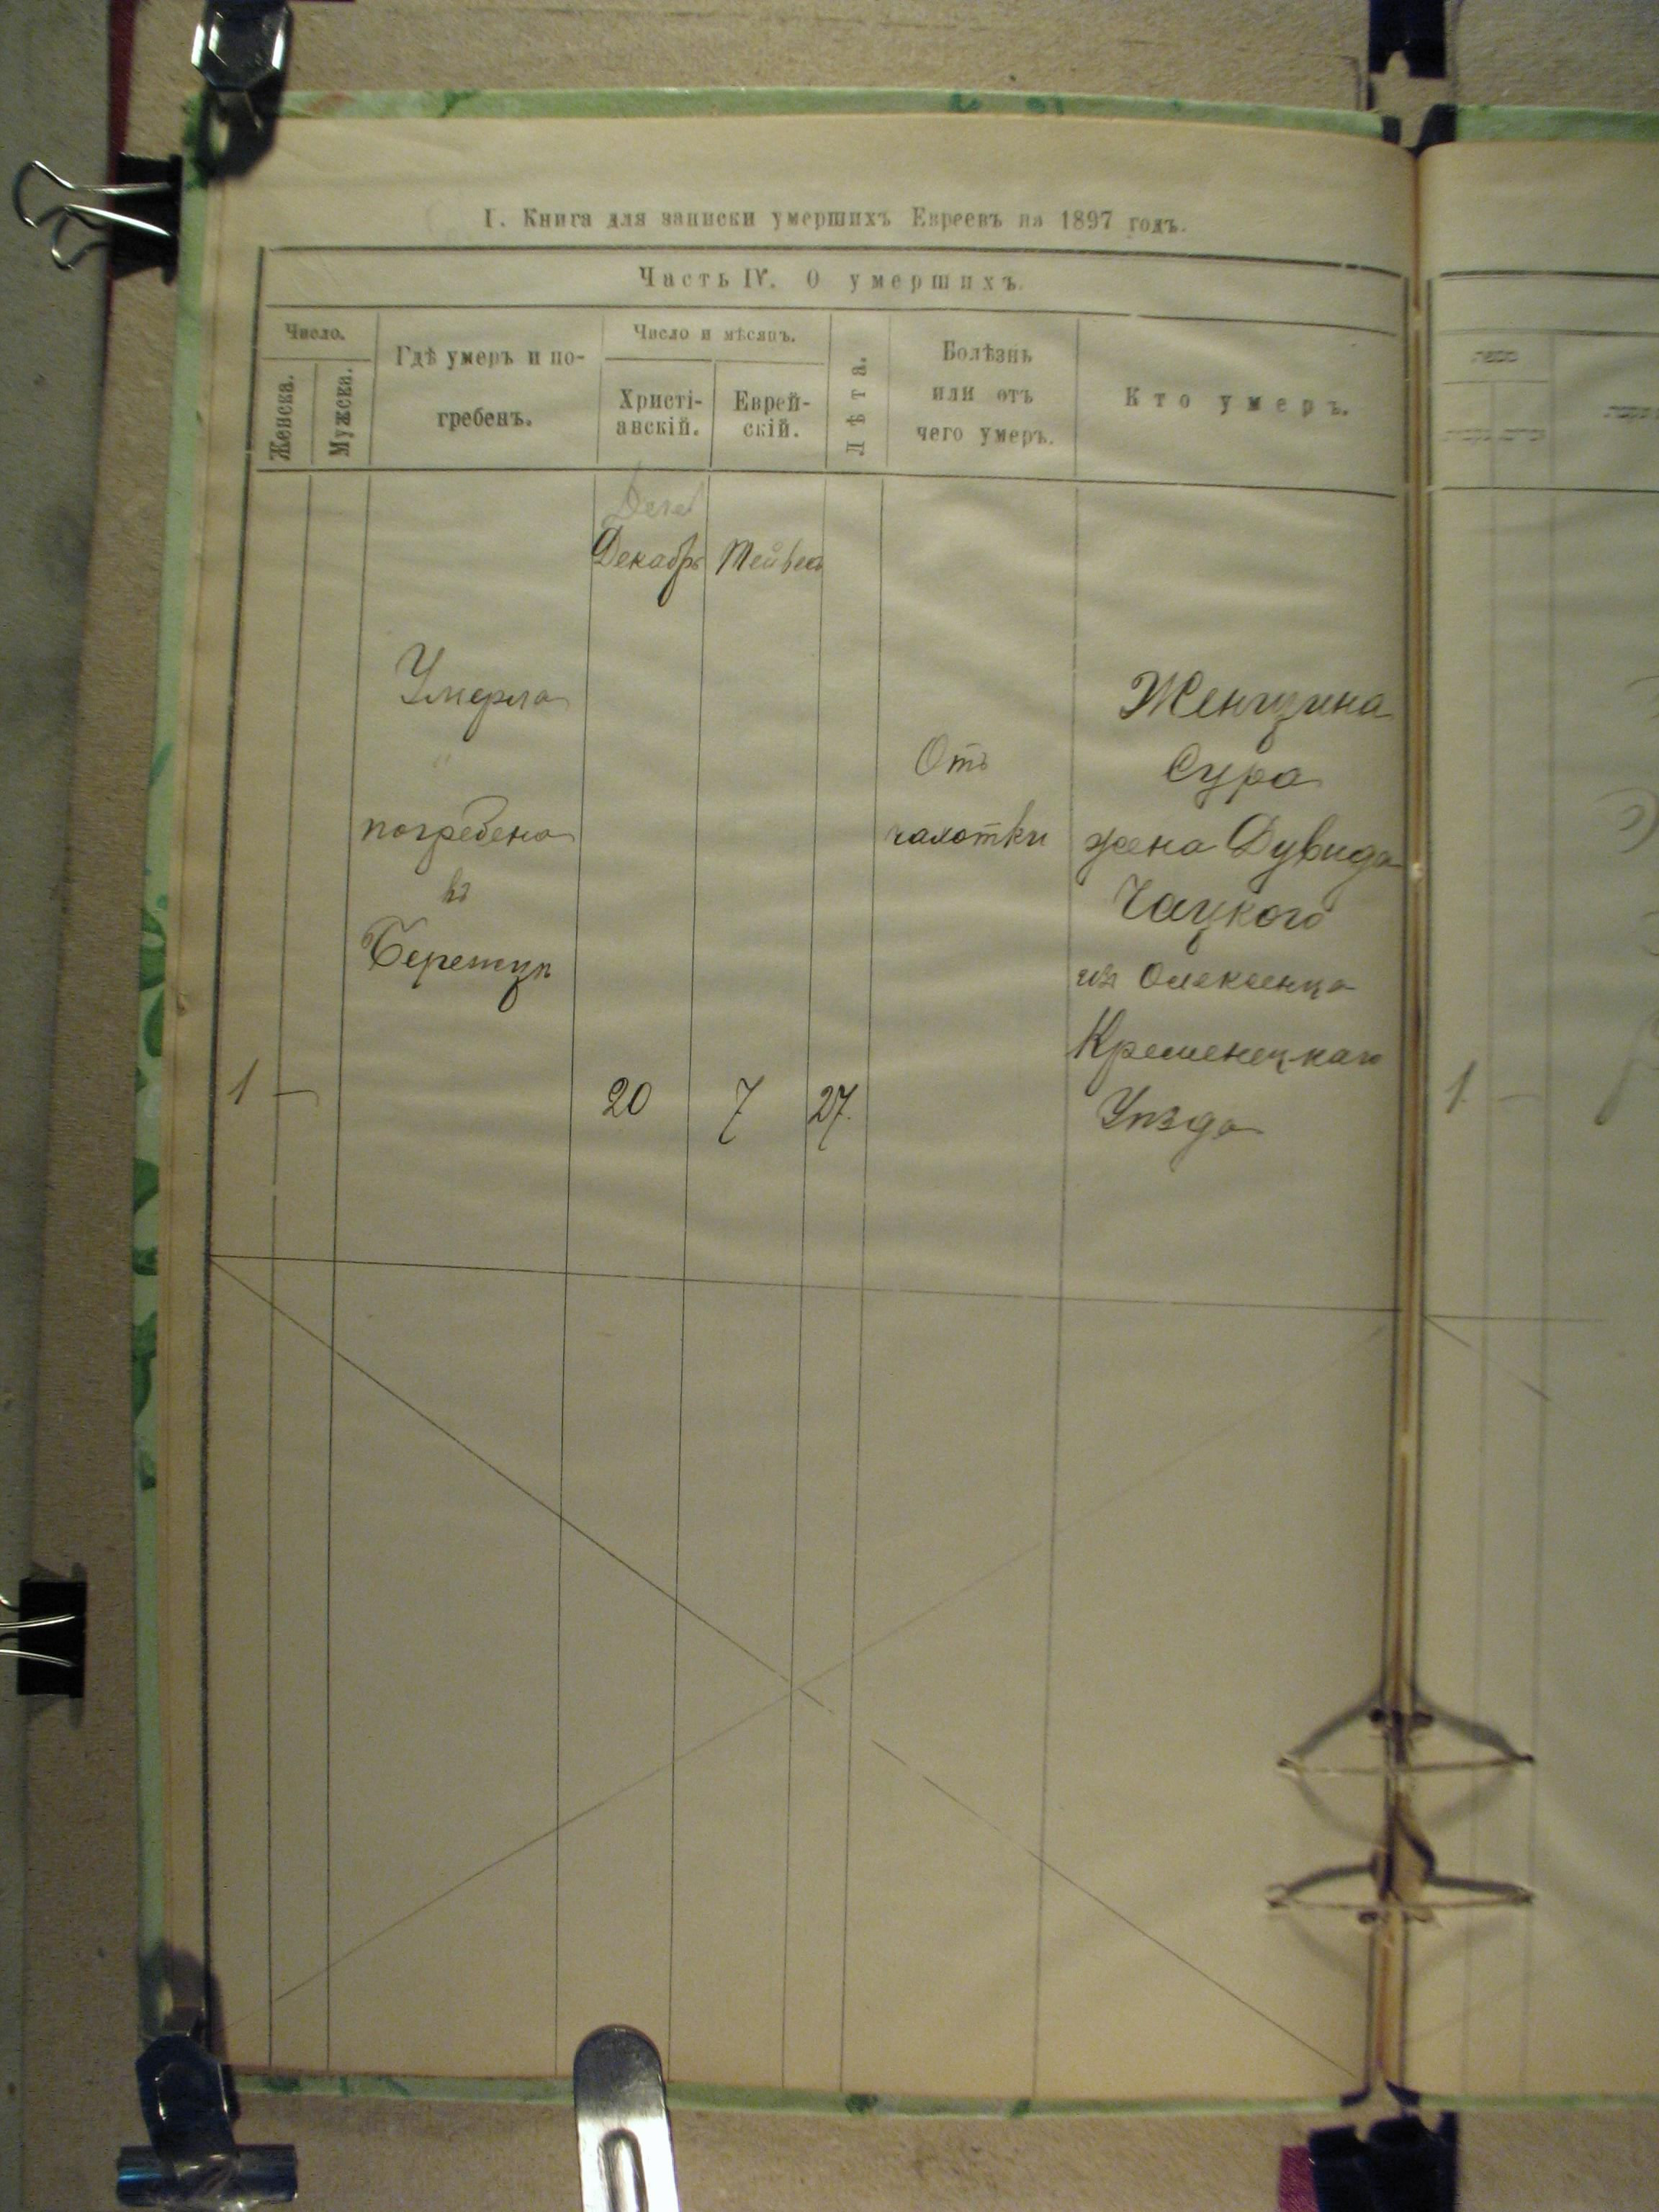 I. Книга для записки умершихъ Евреевъ на 1897 годъ.
Часть IV. О умершихъ.
Число.
Женска.
Мужска.
Гдѣ умеръ и по-
гребенъ.
Число и мѣсяцъ.
Христі-
анскій.
Еврей-
скій.
Лѣта.
Болѣзнь
или отъ
чего умеръ.
Кто умеръ.
Декабрь
Тейвеса
Умерла
"
погребена
въ
1 —
20
7
27.
Отъ
чахотки
Женщина
Сура
жена Дувида
Чацкого
изъ Олексинца
Кременецкаго
Уѣзда
1 —